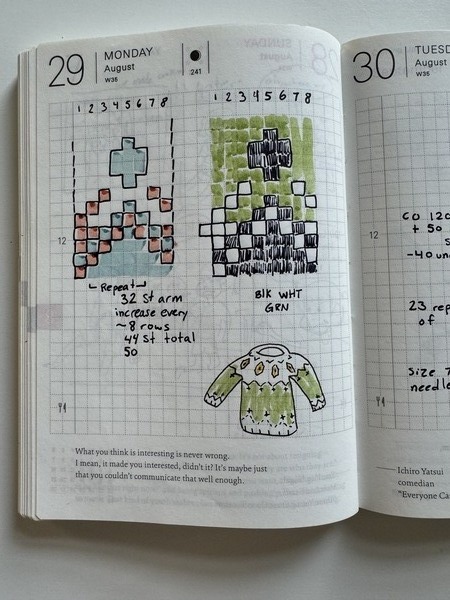 29
MONDAY
August
W35
241
1 2 3 4 5 6 7 8
1 2 3 4 5 6 7 8
12
Repeat
32 St arm
increase every
~8 rows
44 St total
50
BlK WHT
GRN
What you think is interesting is never wrong.
I mean, it made you interested, didn't it? It's maybe just
that you couldn't communicate that well enough.
30
TUESD
August
W35
CO 120
+ 50
12
-40 un
23 rep
of
Size 7
needle
Ichiro Yatsui
comedian
"Everyone Ca